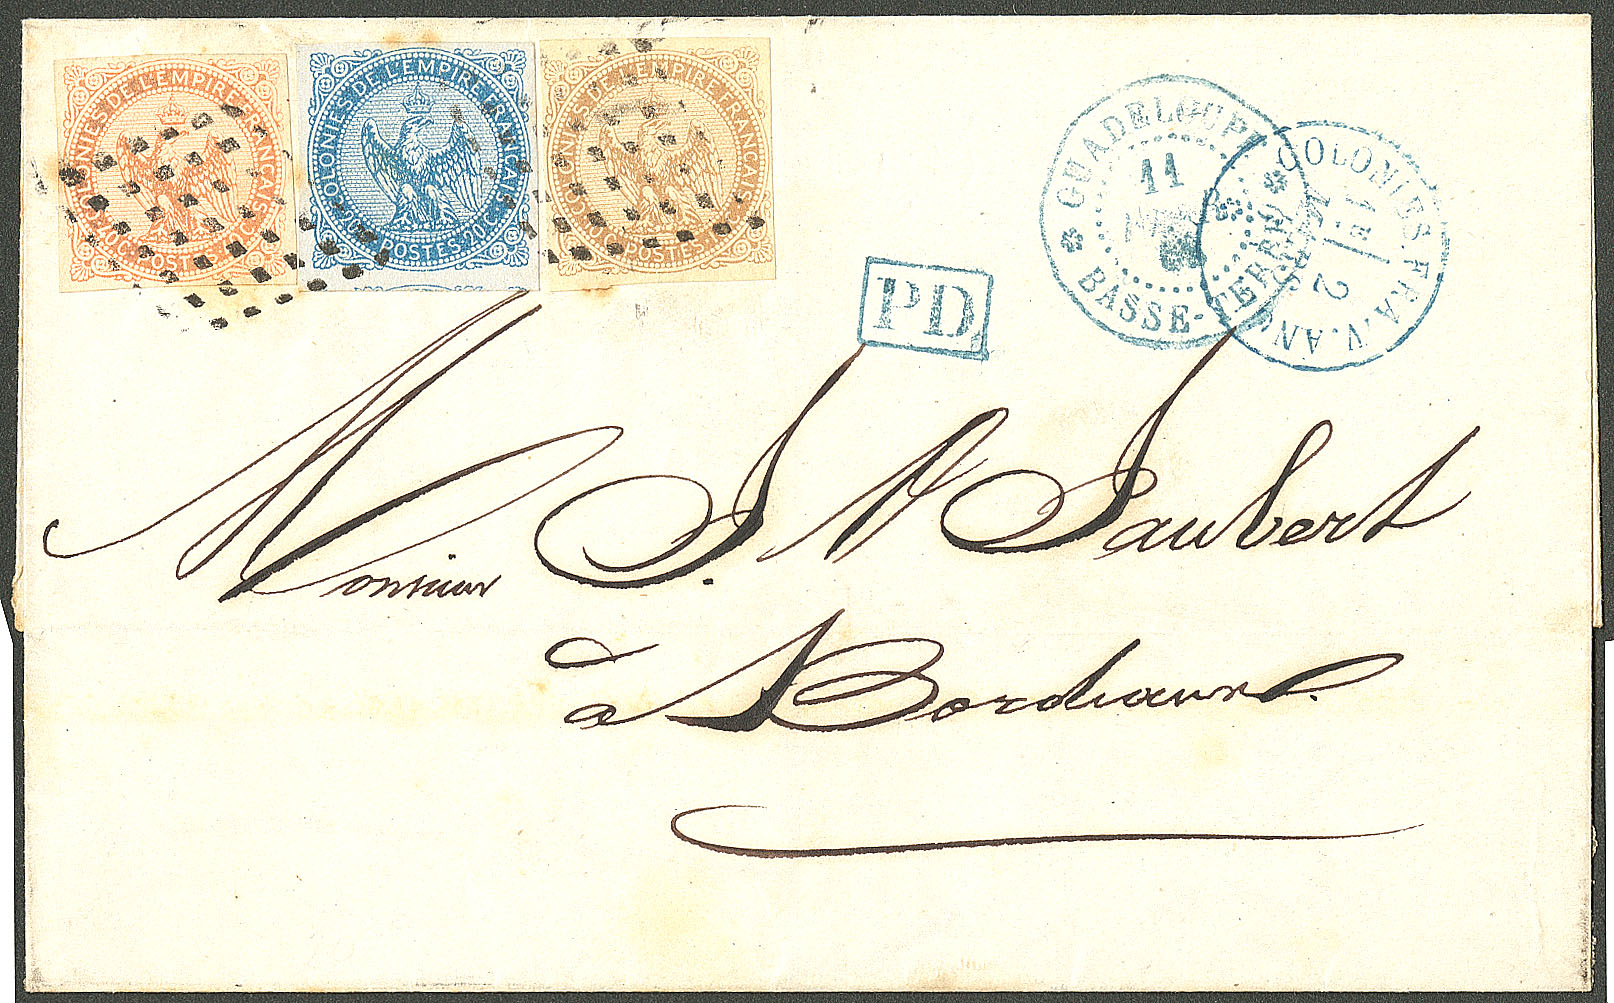 COLONIES DE L'EMPIRE FRANÇAIS
40C. POSTES 40C.
COLONIES DE L'EMPIRE FRANÇAIS
20C. POSTES. 20C.
COLONIES DE L'EMPIRE FRANÇAIS
POSTES
GUADELOUPE
11
BASSE-TERRE
COLONIES.FRA.V.ANG
2
PD
Monsieur J. N Jaubert
à Bordeaux.